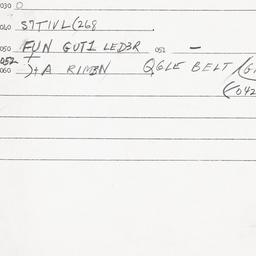 030 O
040 S7TIVL(268
050 FUN GUTI LED3R 051 —
052
060 J+A RIMEN QGLE BELT
(042